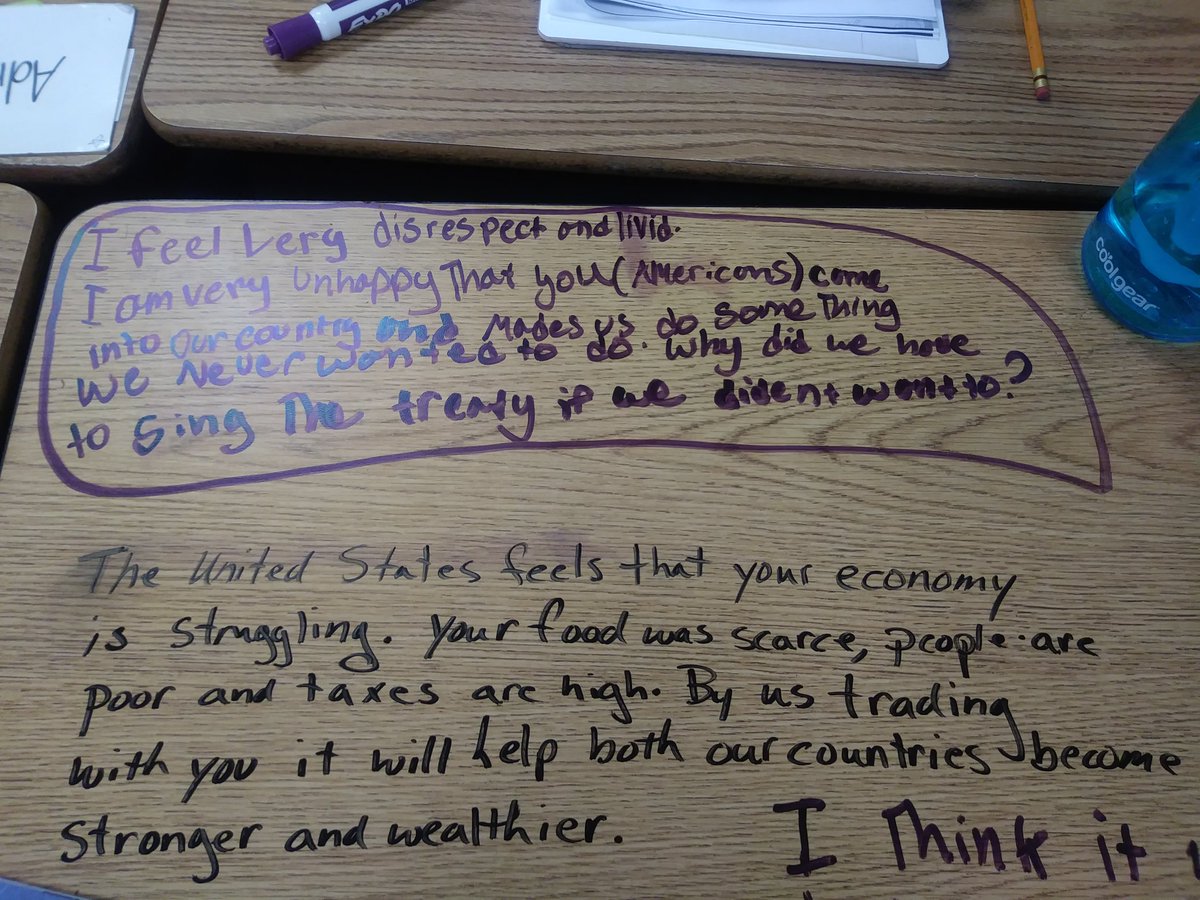 EXPO
Adr
coolgear
I feel very disrespect and livid.
I am very unhappy That you (Americans) come
into our country and Mades us do some Thing
we Never wanted to do. Why did we have
to Sing The treaty if we dident want to?
The United States feels that your economy
is struggling. Your food was scarce, people are
poor and taxes are high. By us trading
with you it will help both our countries become
stronger and wealthier.
I Think it